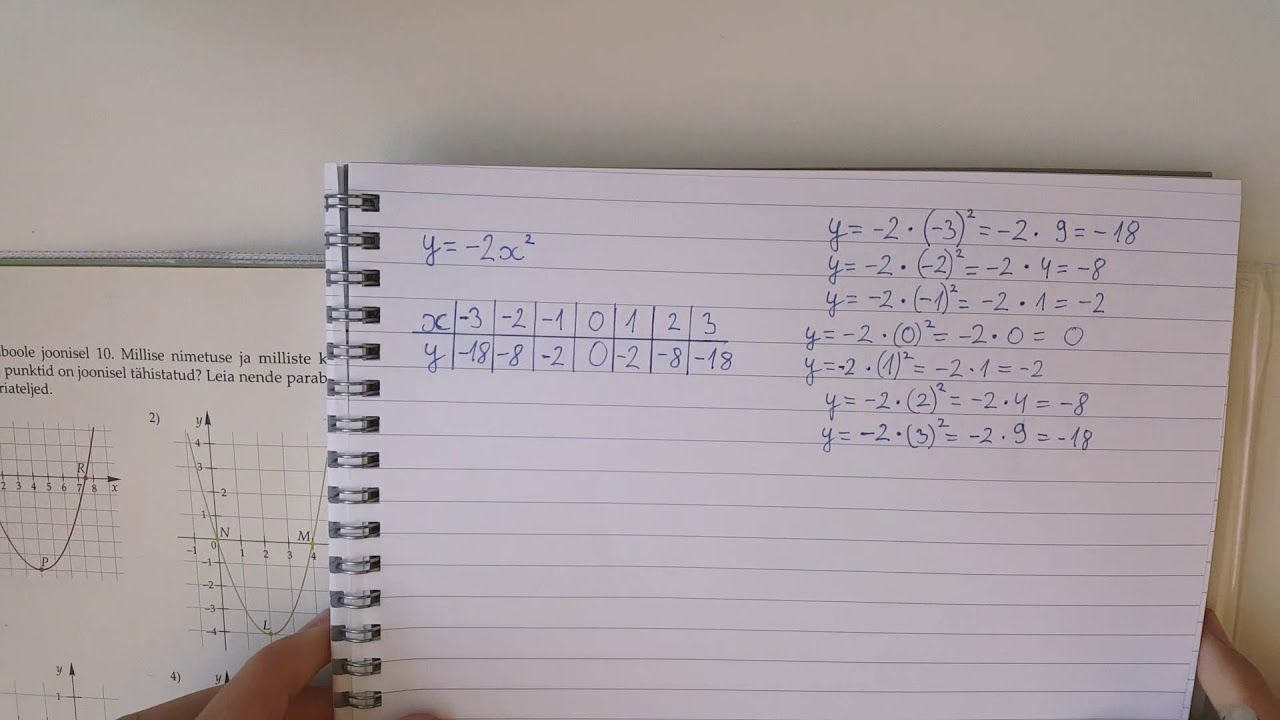 boole joonisel 10. Millise nimetuse ja milliste
punktid on joonisel tähistatud? Leia nende
2)
y
4
3
2
1
N
M
-1 0 1 2 3 4
-1
-2
-3
-4
L
R
2 3 4 5 6 7 8 x
P
y
1
4)
y
y = -2x²
x -3 -2 -1 0 1 2 3
y -18 -8 -2 0 -2 -8 -18
y = -2 · (-3)² = -2 · 9 = -18
y = -2 · (-2)² = -2 · 4 = -8
y = -2 · (-1)² = -2 · 1 = -2
y = -2 · (0)² = -2 · 0 = 0
y = -2 · (1)² = -2 · 1 = -2
y = -2 · (2)² = -2 · 4 = -8
y = -2 · (3)² = -2 · 9 = -18